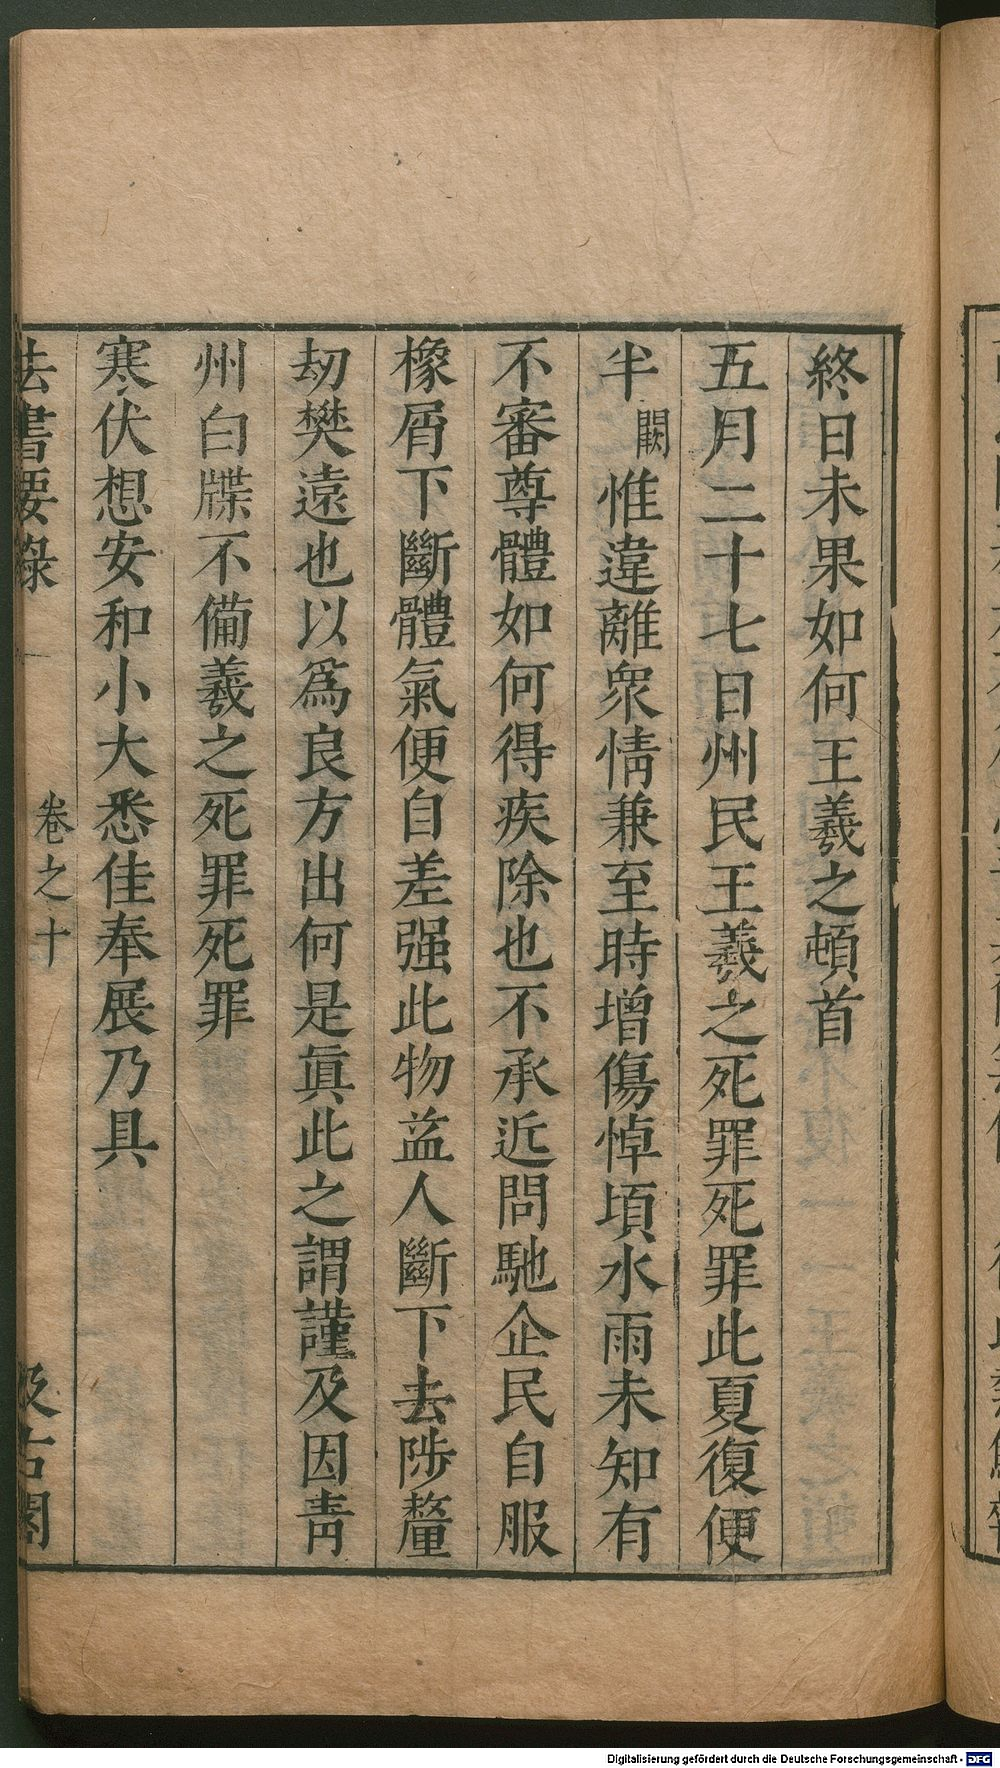 終日未果如何王羲之頓首
五月二十七日州民王羲之死罪死罪此夏復便
半闕惟違離衆情兼至時增傷悼頃水雨未知有
不審尊體如何得疾除也不承近問馳企民自服
橡屑下斷體氣便自差强此物益人斷下去陟釐
劫樊遠也以爲良方出何是眞此之謂謹及因靑
州白牒不備羲之死罪死罪
寒伏想安和小大悉佳奉展乃具
法書要錄 卷之十 汲古閣
Digitalisierung gefördert durch die Deutsche Forschungsgemeinschaft - DFG